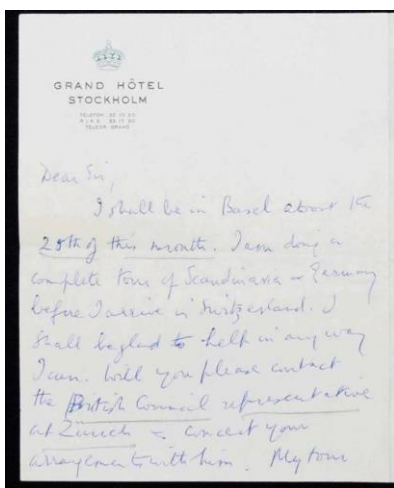 GRAND HÔTEL
STOCKHOLM
TELEFON 22 10 20
RIKS 22 17 20
TELEGR GRAND
Dear Sir,
I shall be in Basel about the
28th of this month. I am doing a
complete tour of Scandinavia & Germany
before I arrive in Switzerland. I
shall be glad to help in any way
I can. Will you please contact
the British Council representative
at Zürich & concert your
arrangements with him. My tour